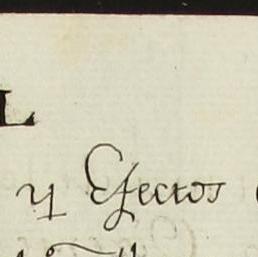 L
y Efectos